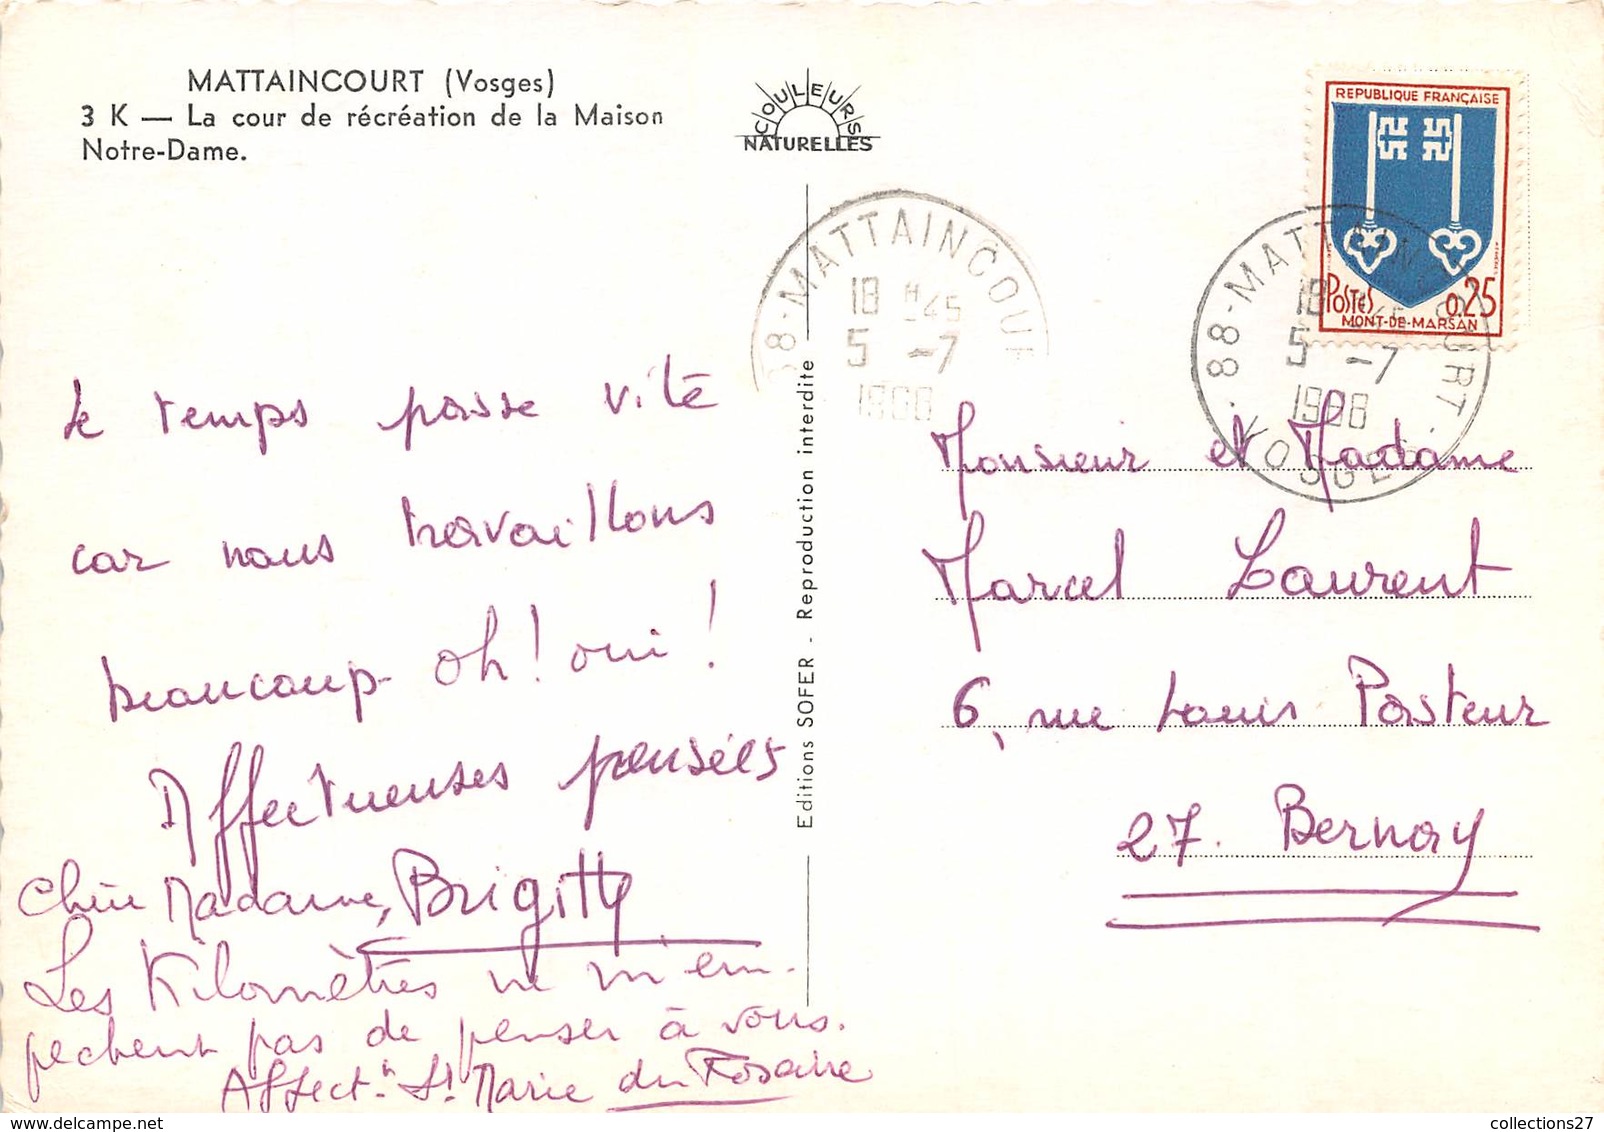 MATTAINCOURT (Vosges)
3 K — La cour de récréation de la Maison
Notre-Dame.
COULEURS
NATURELLES
REPUBLIQUE FRANÇAISE
POSTES 0,25
MONT-DE-MARSAN
88-MATTAINCOUR
18 H45
5 -7
88-MATTAINCOURT.
18
5 -7
VOSGES
Editions SOFER - Reproduction interdite
Le temps passe vite
car nous travaillons
beaucoup oh! oui!
Affectueuses pensées
Brigitte
Chère Madame,
Les Kilomètres ne m'em-
pêchent pas de penser à vous.
Affect. Sr Marie du Rosaire
Monsieur et Madame
Marcel Laurent
6, rue Louis Pasteur
27. Bernay
collections27